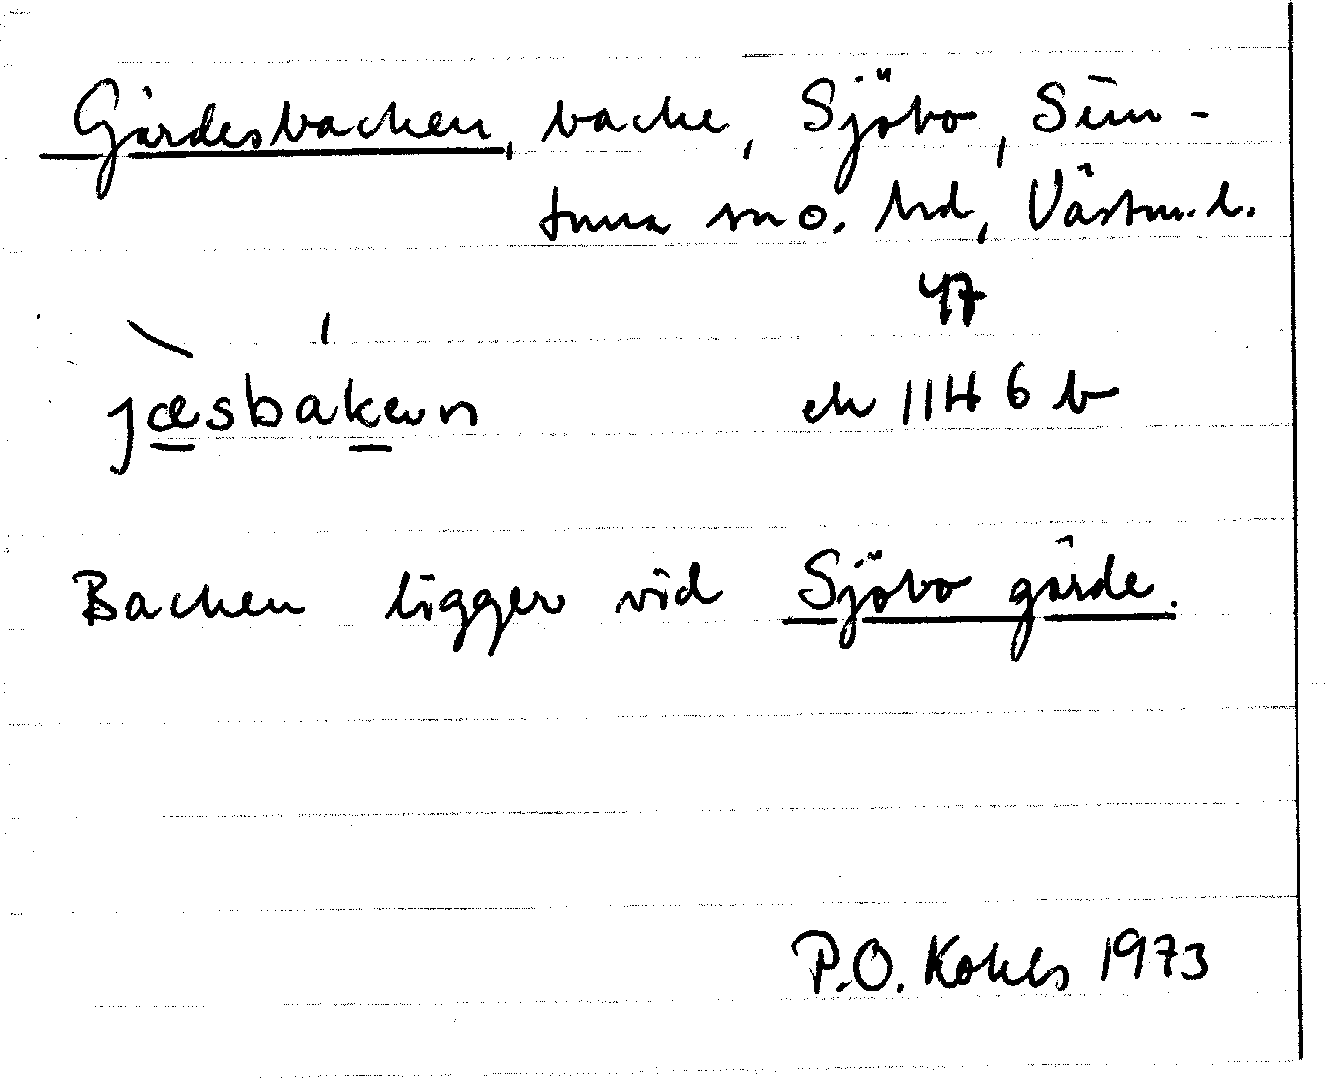 Gärdesbacken, backe, Sjöbo, Sim-
tuna sn o. hd, Västm. l.
47
jæsbakæn ek 11H 6 b
Backen ligger vid Sjöbo gärde.
P.O. Kohls 1973